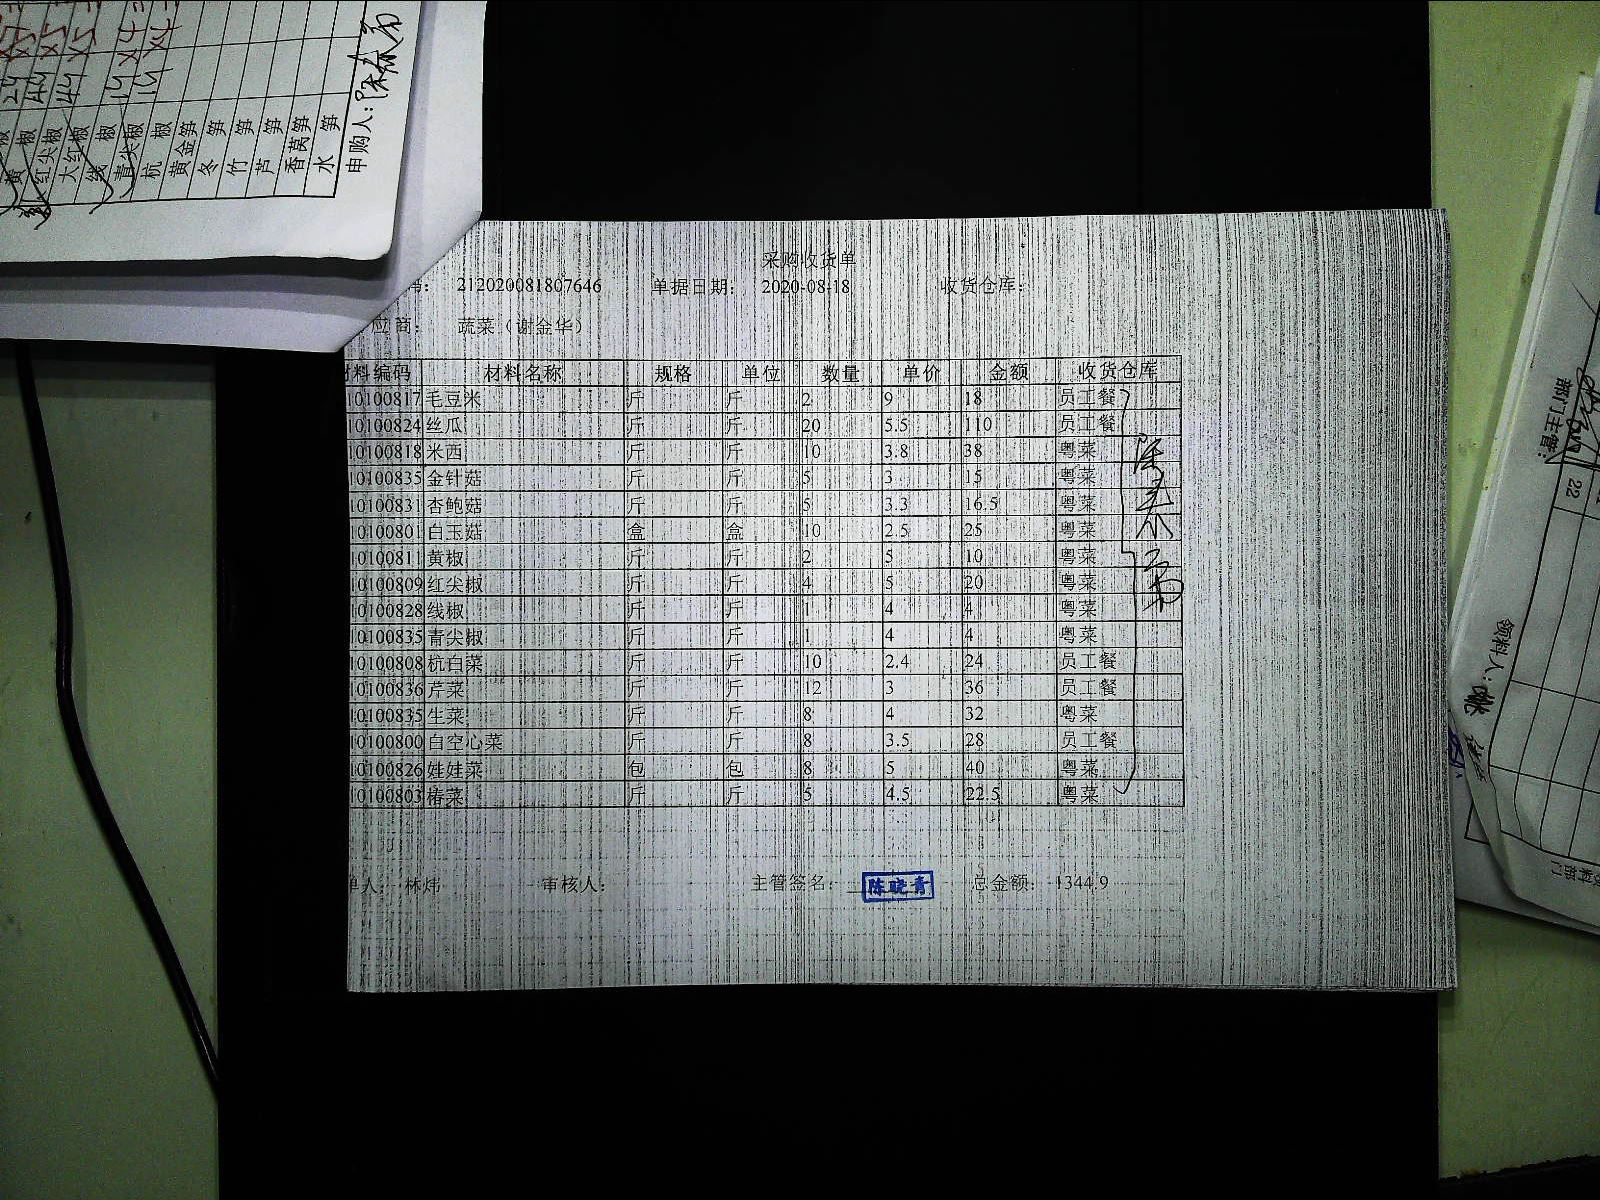 采购收货单
212020081807646 单据日期： 2020-08-18 收货仓库：
应商： 蔬菜（谢金华）
材料编码 材料名称 规格 单位 数量 单价 金额 收货仓库
10100817 毛豆米 斤 斤 2 9 18 员工餐
10100824 丝瓜 斤 斤 20 5.5 110 员工餐
10100818 米西 斤 斤 10 3.8 38 粤菜
10100835 金针菇 斤 斤 5 3 15 粤菜
10100831 杏鲍菇 斤 斤 5 3.3 16.5 粤菜
10100801 白玉菇 盒 盒 10 2.5 25 粤菜
10100811 黄椒 斤 斤 2 5 10 粤菜
10100809 红尖椒 斤 斤 4 5 20 粤菜
10100828 线椒 斤 斤 1 4 4 粤菜
10100835 青尖椒 斤 斤 1 4 4 粤菜
10100808 杭白菜 斤 斤 10 2.4 24 员工餐
10100836 芹菜 斤 斤 12 3 36 员工餐
10100835 生菜 斤 斤 8 4 32 粤菜
10100800 白空心菜 斤 斤 8 3.5 28 员工餐
10100826 娃娃菜 包 包 8 5 40 粤菜
10100803 椿菜 斤 斤 5 4.5 22.5 粤菜
单人： 林炜 审核人： 主管签名： 陈晓青 总金额： 1344.9
黄 椒
红尖椒
大红椒
线 椒
青尖椒
杭 椒
黄金笋
冬 笋
竹 笋
芦 笋
香莴笋
水 笋
申购人：
部门主管：
22
领料人：